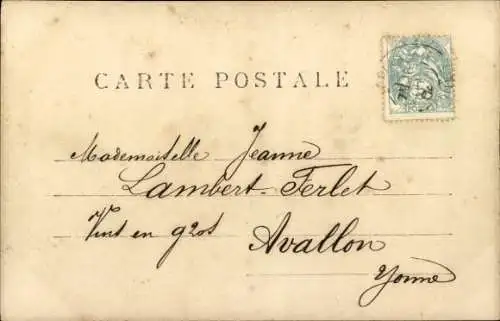 CARTE POSTALE
Mademoiselle Jeanne
Lambert-Ferlet
Vint en gros
Avallon
Yonne